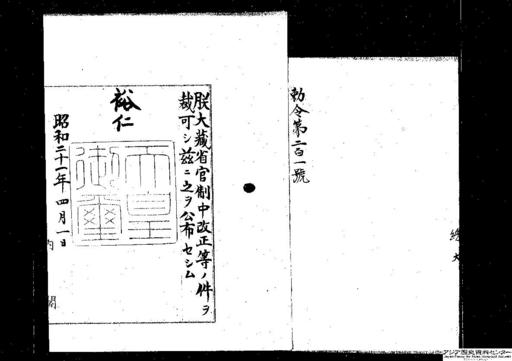 勅令第二百一號
朕大藏省官制中改正等ノ件ヲ
裁可シ茲ニ之ヲ公布セシム
裕仁
天皇
御璽
昭和二十一年四月一日
内閣
アジア歴史資料センター